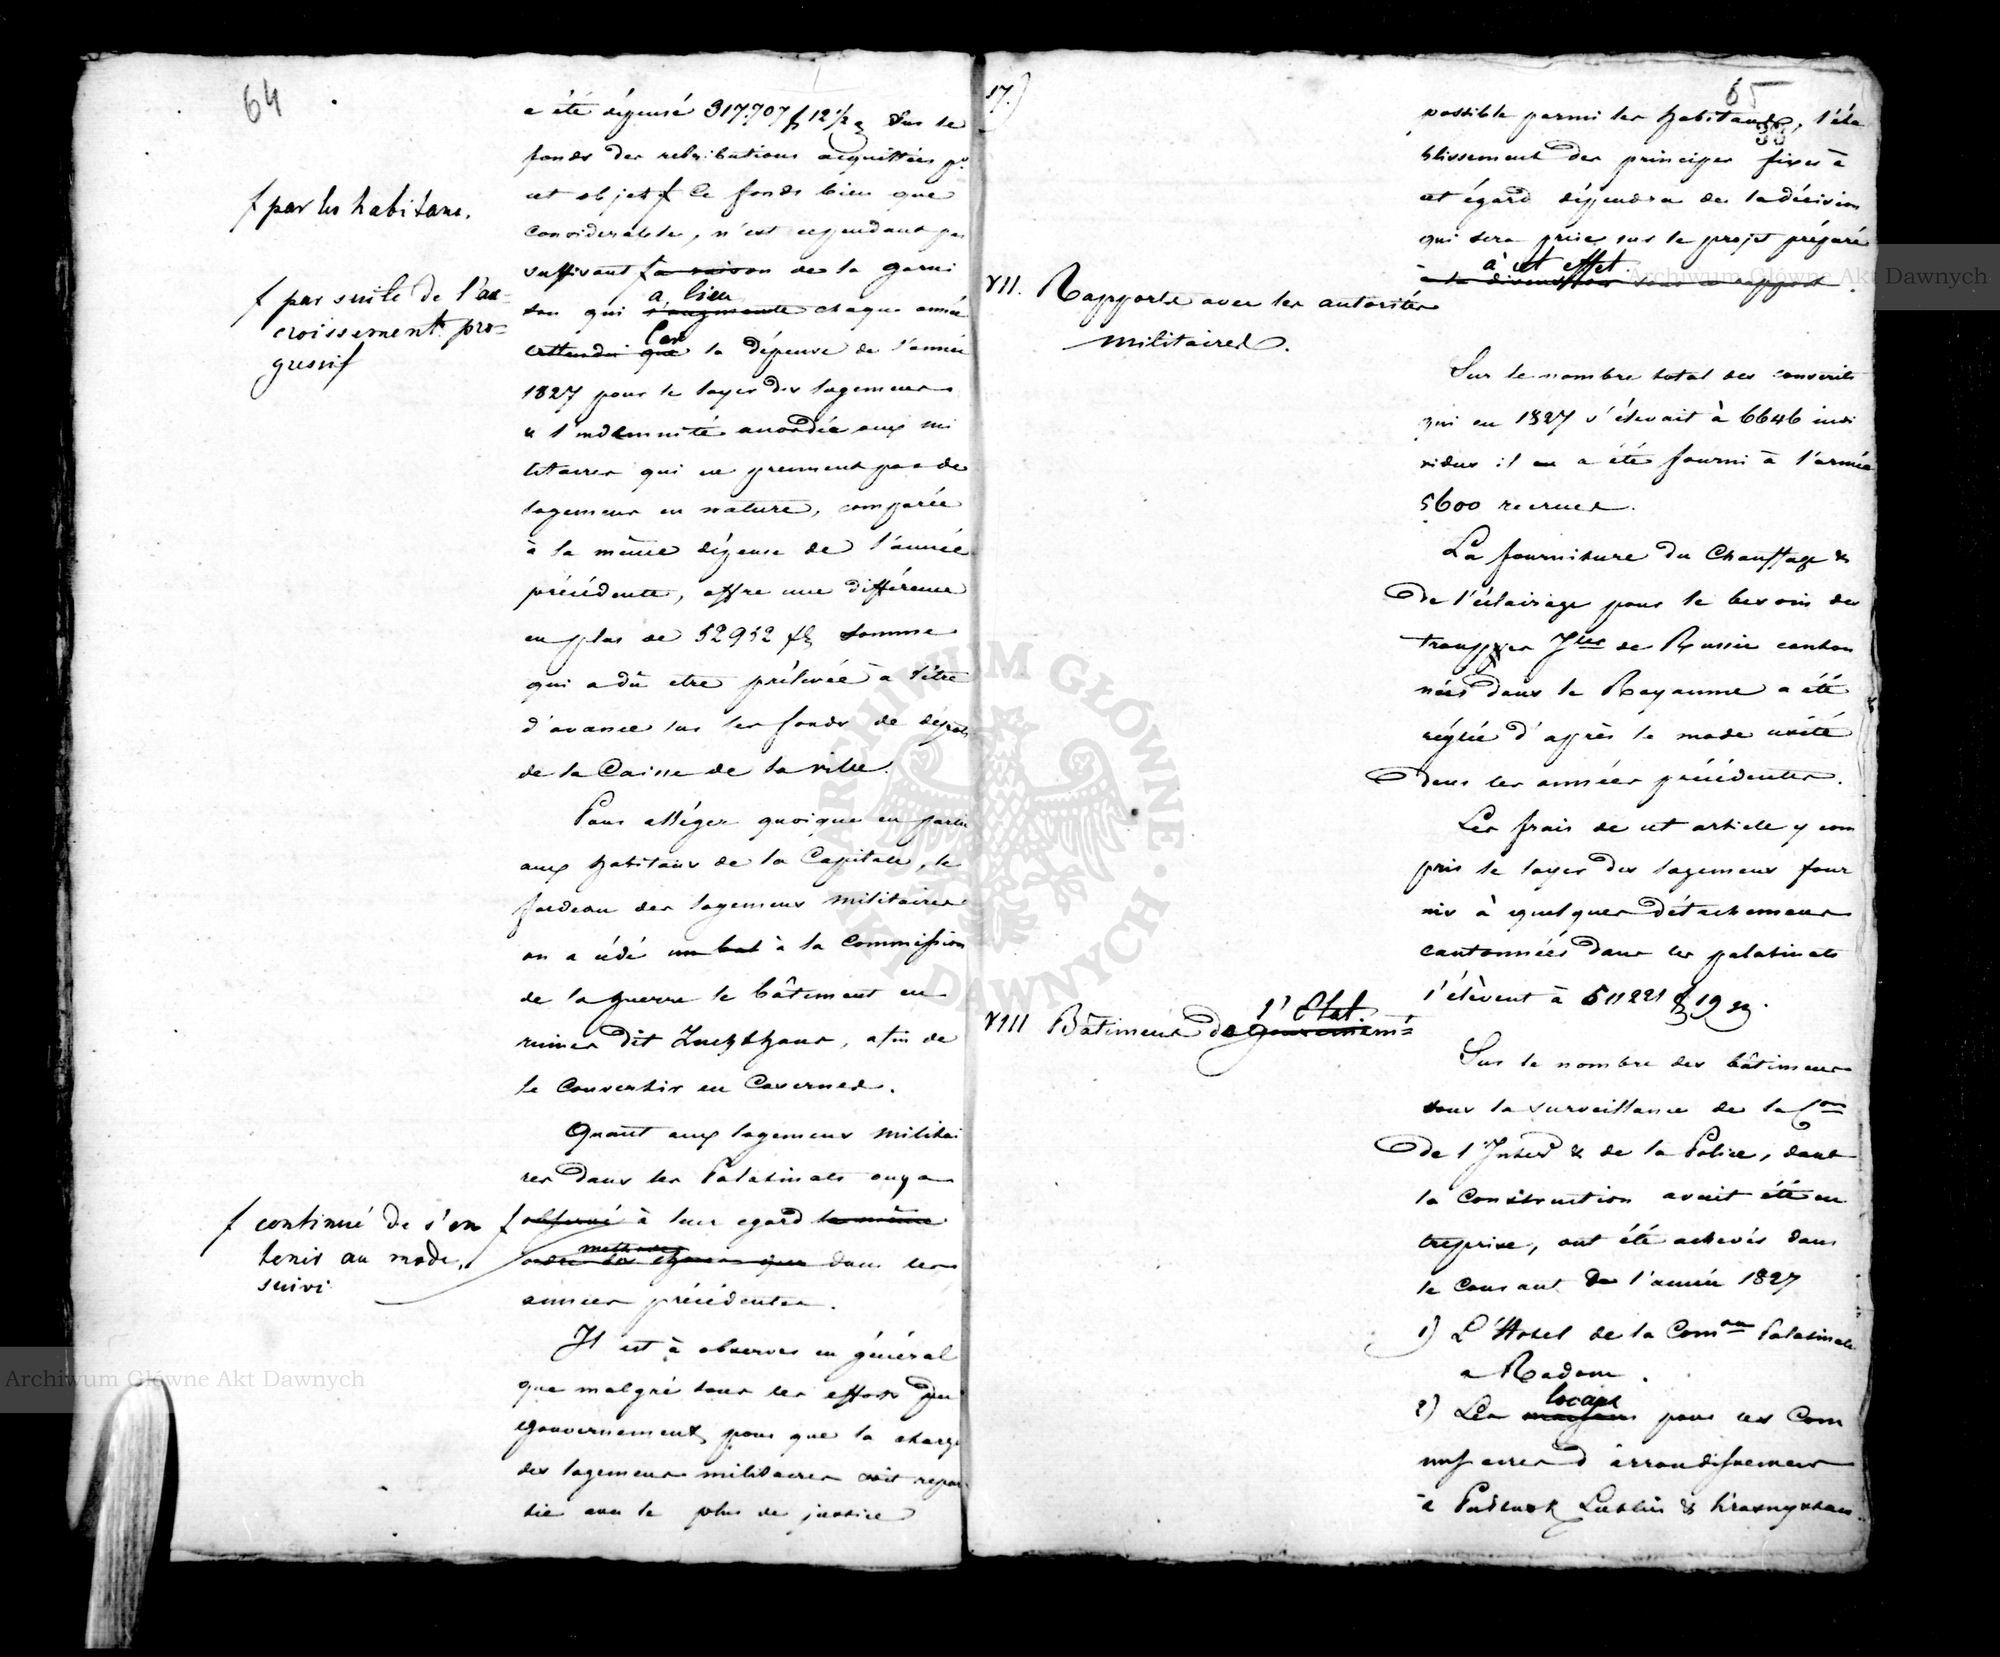 64
a été dépensé 317.707 f 12 1/2 g Sur le
fonds des retributions acquittées pr
cet objet f Ce fonds bien que
f par les habitans.
considerable, n'est cependant pas
suffisant f a raison de la garni
f par suite de l'ac-
croissement pro-
gressif
a lieu
son qui s'augmente chaque année
Car
attendu que la dépense de l'année
1827 pour le loyer des logemens
& l'indemnité accordée aux mi
litaires qui ne prennent pas de
logemens en nature, comparée
à la même dépense de l'année
précédente, offre une différence
en plus de 52952 fl somme
qui a dû etre prélevée à titre
d'avance sur les fonds de dépots
de la Caisse de la ville.
Pour alléger quoique en partie
aux habitans de la Capitale, le
fardeau des logemens militaires
on a cédé un bat à la Commission
de la guerre le bâtiment en
ruines dit Zuchthaus, afin de
le convertir en Casernes.
Quant aux logemens militai
res dans les Palatinats on y a
f continué de s'en
tenir au mode
suivi
f observé à leur egard le même
methodes
ordre des choses que dans les
années précédentes.
Il est à observer en général
que malgré tous les efforts du
gouvernement pour que la charge
des logemens militaires soit repar
tie avec le plus de justice
17.)
65
33
possible parmi les habitans, l'éta
blissement des principes fixes à
cet égard dépendra de la décision
qui sera prise sur le projet préparé
à cet effet.
VII. Rapports avec les autorités
militaires.
Sur le nombre total des conscrits
qui en 1827 s'élevait à 6646 indi
vidus il en a été fourni à l'armée
5600 recrues.
La fourniture du chauffage &
de l'éclairage pour le besoin des
trouppes Jles de Russie canton
nées dans le Royaume a été
réglée d'après le mode usité
dans les années précédentes.
Les frais de cet article y com
pris le loyer des logemens four
nis à quelques détachemens
cantonnées dans les palatinats
s'élèvent à 511221 f 19 g.
l'Etat.
VIII Bâtimens de gouvernemt
Sur le nombre des bâtimens
sous la surveillance de la Con
de l'Intér & de la Police, dont
la construction avait été en
treprise, ont été achevés dans
le courant de l'année 1827
1) L'Hotel de la Comon Palatinale
a Radom.
locaux
2) Les maisons pour les Com
missaires d'arrondissemens
à Pultusk Lublin & Krasnystaw.
Archiwum Główne Akt Dawnych
Archiwum Główne Akt Dawnych
ARCHIWUM GŁÓWNE AKT DAWNYCH